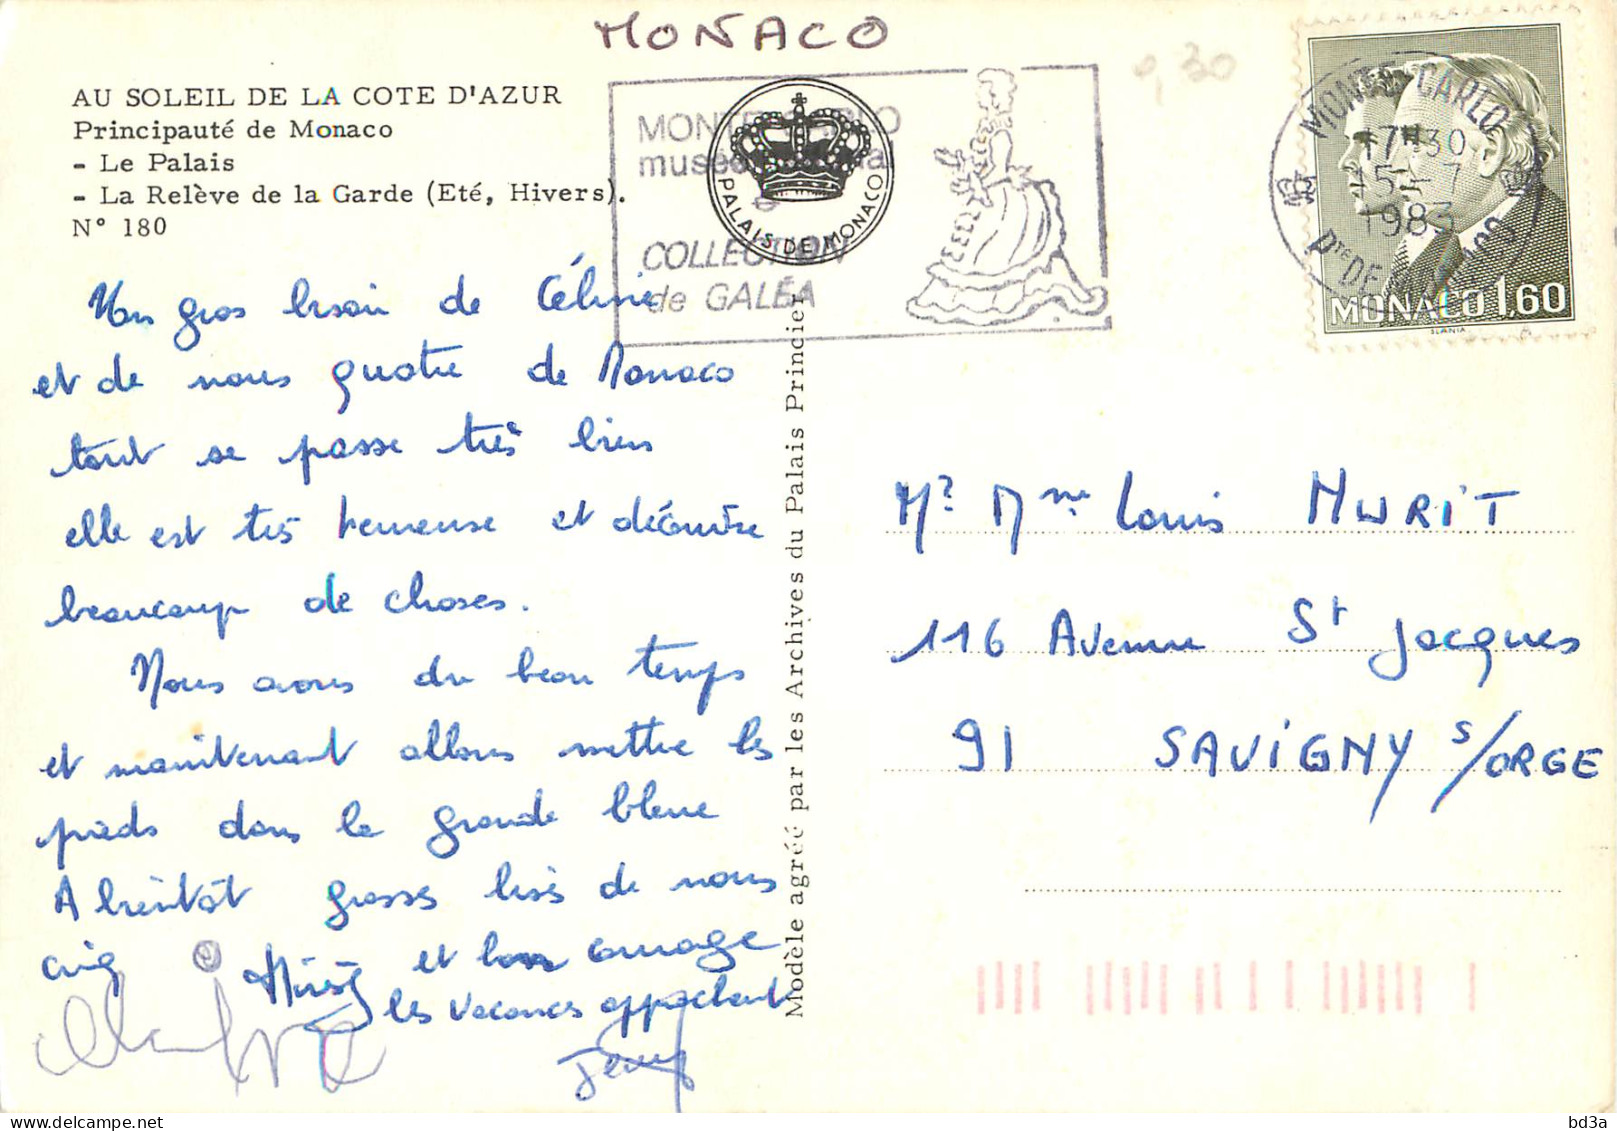 MONACO
0,30
AU SOLEIL DE LA COTE D'AZUR
Principauté de Monaco
- Le Palais
- La Relève de la Garde (Eté, Hivers).
N° 180
MONTE-CARLO
musée national
COLLECTION
de GALÉA
PALAIS DE MONACO
MONTE-CARLO
17H30
15 - 7
1983
PTE DE MONACO
MONACO 1,60
SLANIA
Un gros bisou de Céline
et de nous quatre de Monaco
tout se passe très bien
elle est très heureuse et découvre
beaucoup de choses.
Nous avons du beau temps
et maintenant allons mettre les
pieds dans la grande bleue
A bientôt grosses bises de nous
cinq
et bon courage
les vacances approchent
Modèle agréé par les Archives du Palais Princier
Mr Mme Louis MURIT
116 Avenue St Jacques
91 SAVIGNY S/ORGE
bd3a